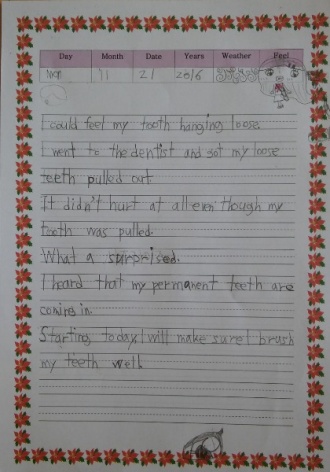 Day Month Date Years Weather Feel
Mon 11 21 2016
I could feel my tooth hanging loose.
I went to the dentist and got my loose
teeth pulled out.
It didn't hurt at all even though my
tooth was pulled.
What a surprised.
I heard that my permanent teeth are
coming in.
Starting today, I will make sure I brush
my teeth well.